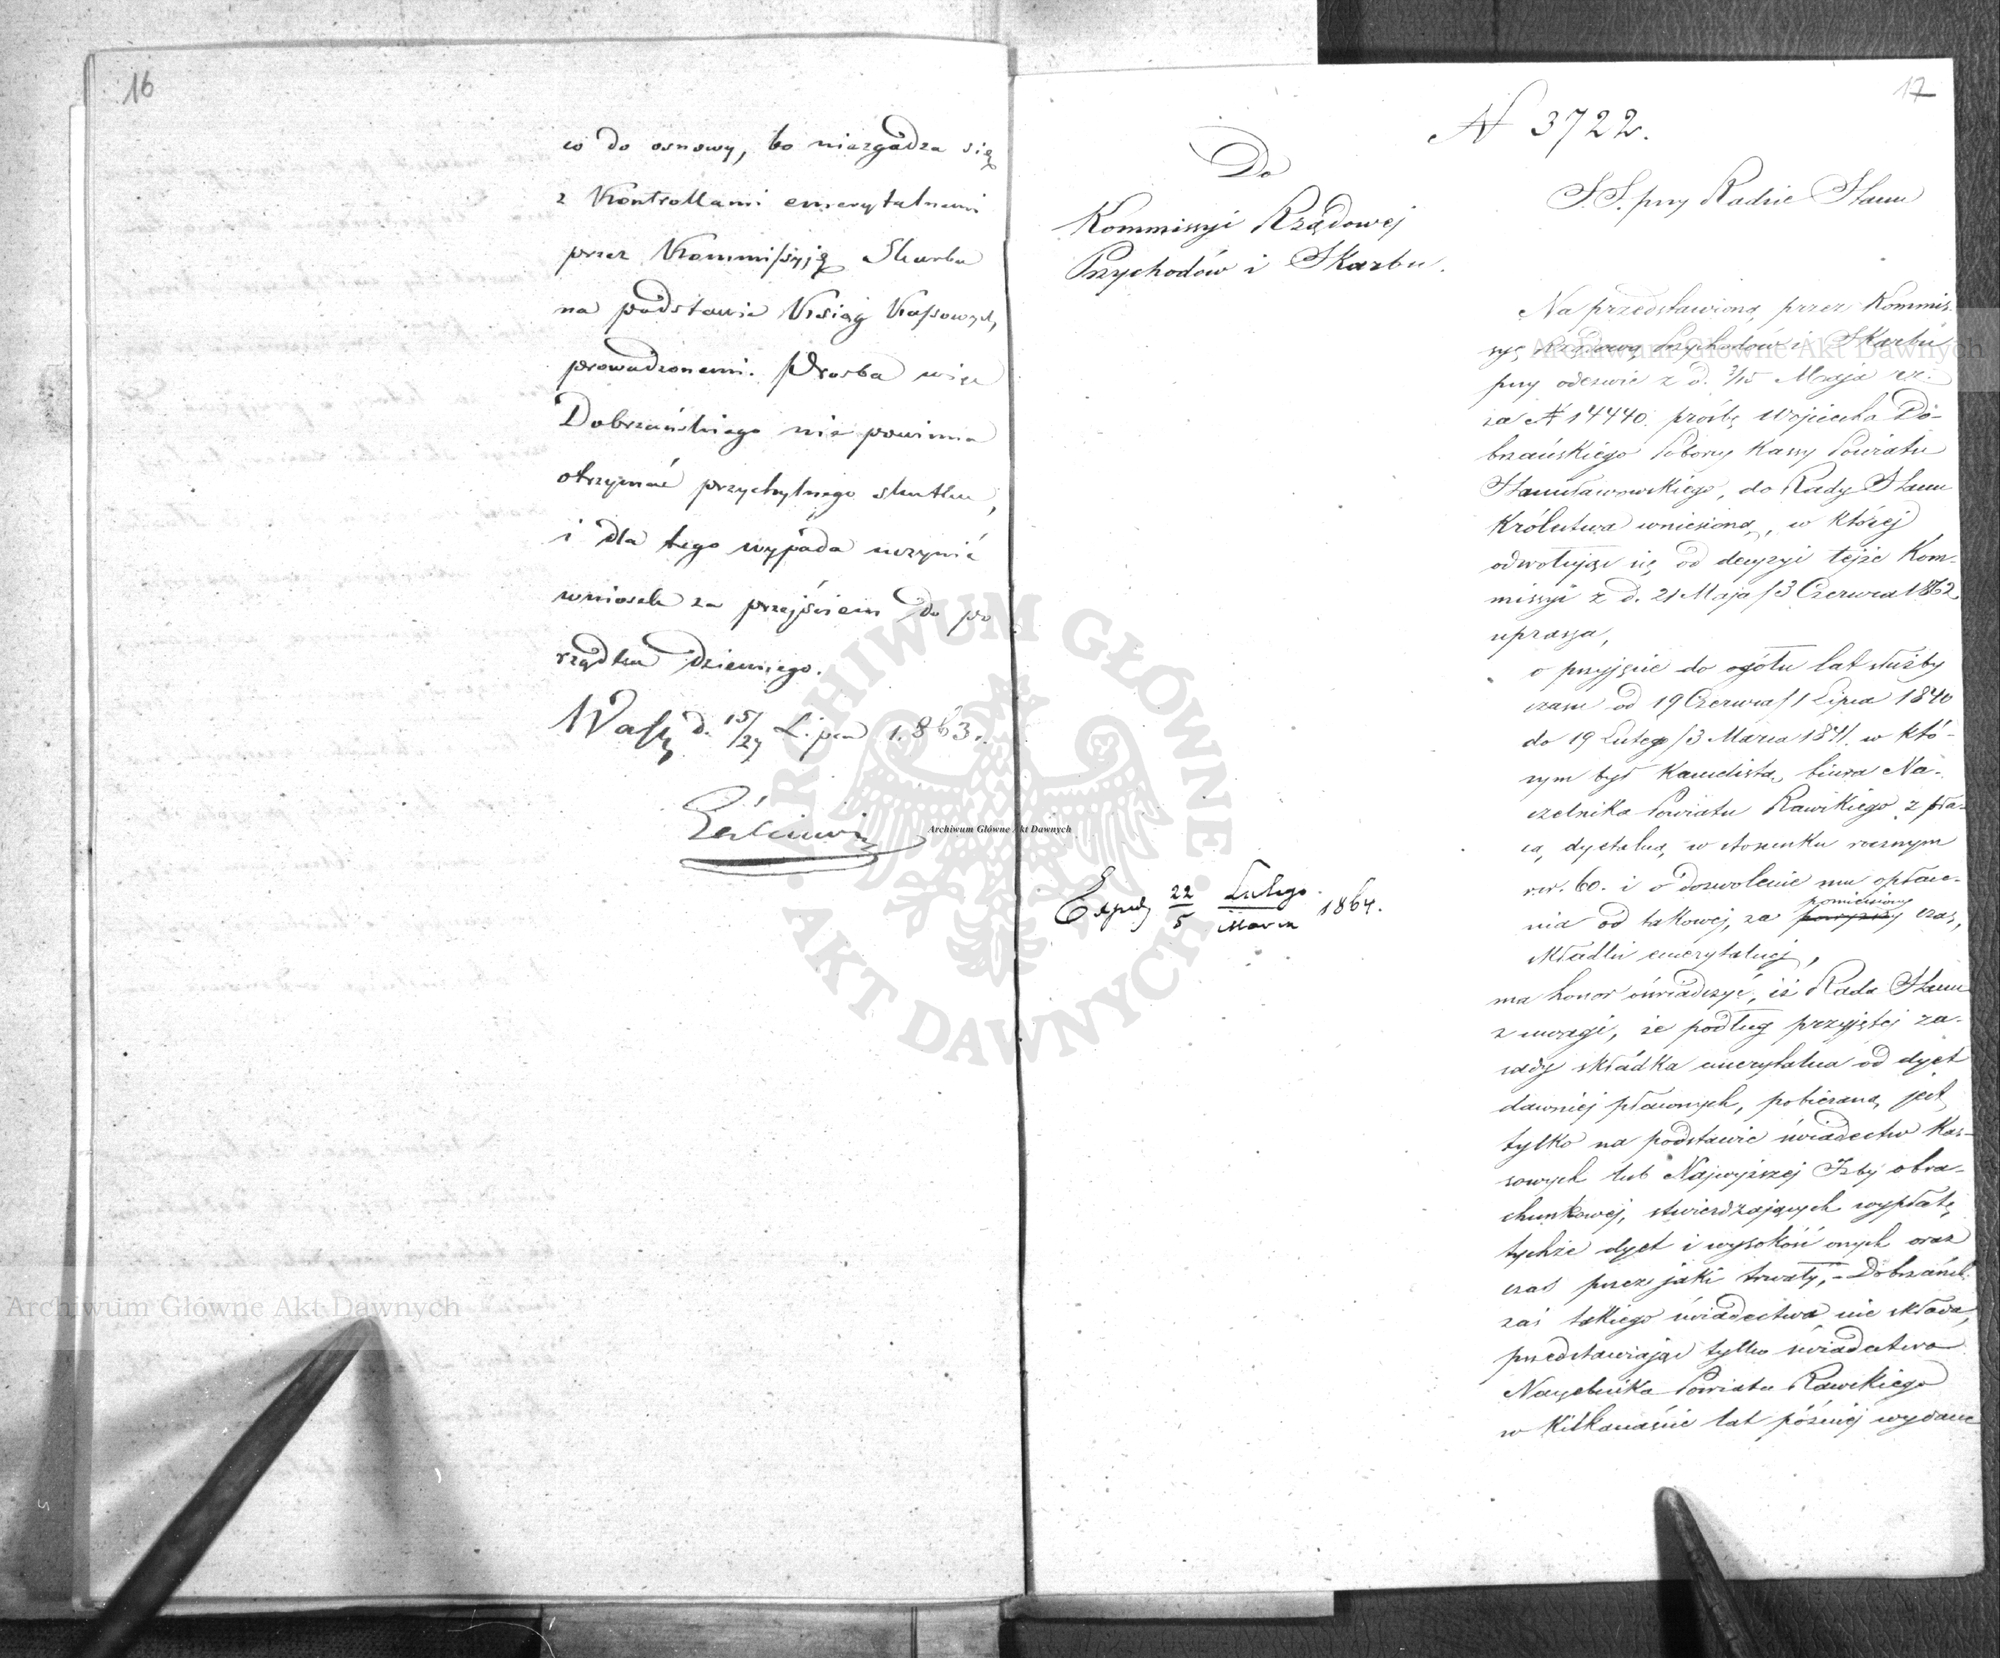 16
co do osnowy, bo niezgadza się
z Kontrollami emerytalnemi
przez Kommissyją Skarbu
na podstawie Ksiąg Kassowych,
prowadzonemi. Prośba więc
Dobrzańskiego nie powinna
otrzymać przychylnego skutku,
i dla tego wypada uczynić
wniosek za przejściem do po
rządku dziennego.
Warsz. d. 15/27 Lipca 1863 r.
17
N 3722.
Do
Kommissyi Rządowej
Przychodów i Skarbu.
S. S. przy Radzie Stanu
Na przedstawioną przez Kommis-
syę Rządową Przychodów i Skarbu
przy odezwie z d. 3/15 Maja r. z.
za N 14440. prośbę Wojciecha Do-
brzańskiego Poborcy Kassy Powiatu
Stanisławowskiego, do Rady Stanu
Królestwa wniesioną, w której
odwołując się od decyzyi tejże Kom-
missyi z d. 21 Maja/3 Czerwca 1862
uprasza,
o przyjęcie do ogółu lat służby
czasu od 19 Czerwca/1 Lipca 1840
do 19 Lutego/3 Marca 1841. w któ-
rym był Kancelistą biura Na-
czelnika Powiatu Rawskiego z pła-
cą dyetalną w stosunku rocznym
rsr. 60. i o dozwolenie mu opłace-
nia od takowej, za pomieniony czas,
składki emerytalnej,
ma honor oświadczyć, iż Rada Stanu
z uwagi, że podług przyjętej za-
sady składka emerytalna od dyet
dawniej płaconych, pobieraną jest
tylko na podstawie świadectw Kas-
sowych lub Najwyższej Izby obra-
chunkowej, stwierdzających wypłatę
tychże dyet i wysokość onych oraz
czas przez jaki trwały, – Dobrzański
zaś takiego świadectwa nie składa,
przedstawiając tylko świadectwo
Naczelnika Powiatu Rawskiego
w Kilkanaście lat później wydane
Exped. 22/5 Lutego/Marca 1864.
Archiwum Główne Akt Dawnych
ARCHIWUM GŁÓWNE AKT DAWNYCH
Archiwum Główne Akt Dawnych
Archiwum Główne Akt Dawnych